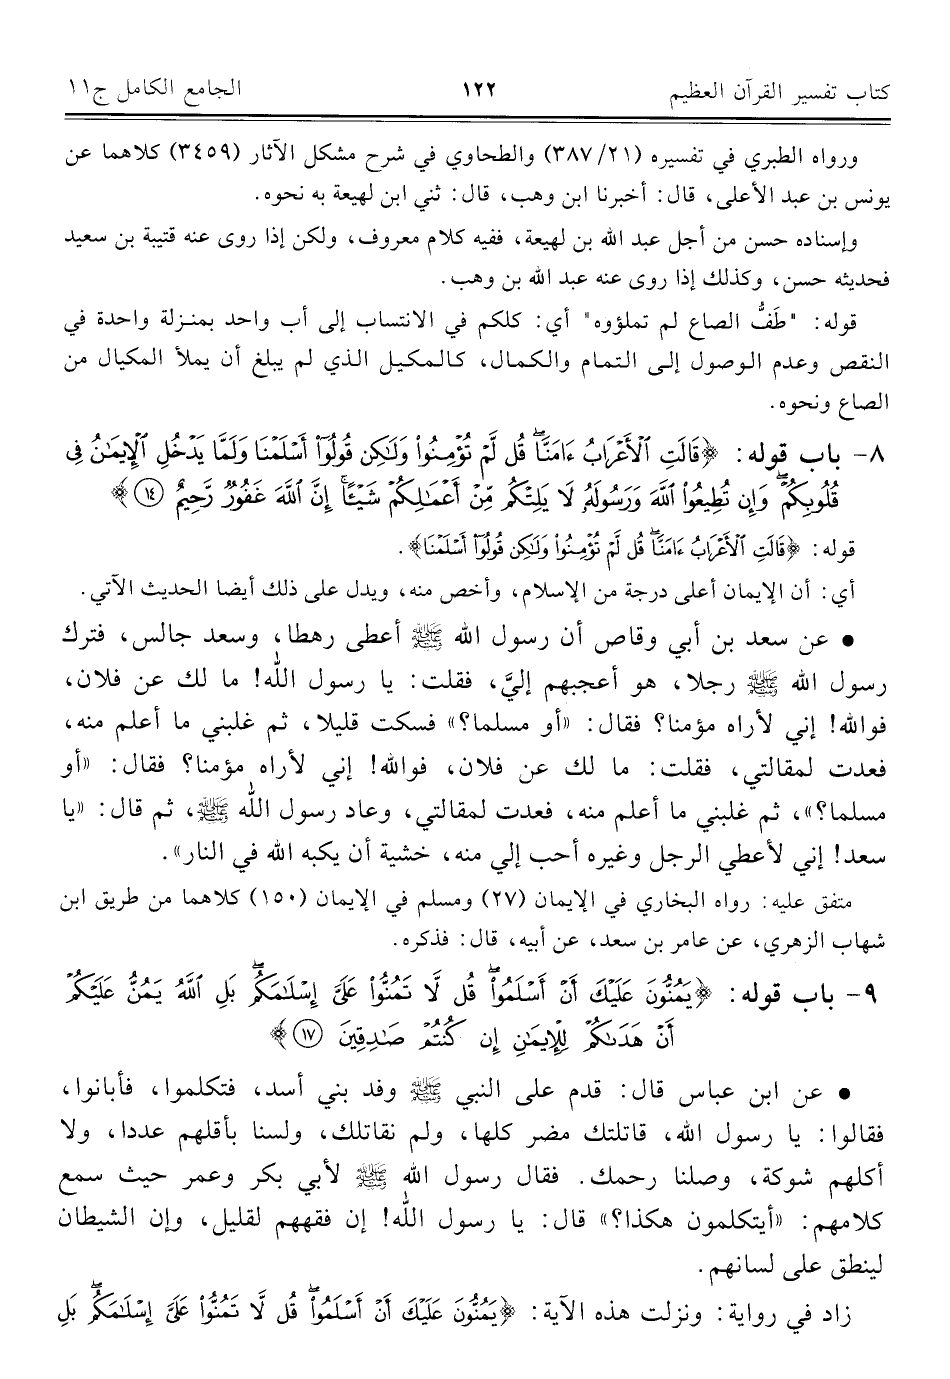 كتاب تفسير القرآن العظيم ١٢٢ الجامع الكامل ج١١
ورواه الطبري في تفسيره (٣٨٧/٢١) والطحاوي في شرح مشكل الآثار (٣٤٥٩) كلاهما عن
يونس بن عبد الأعلى، قال: أخبرنا ابن وهب، قال: ثني ابن لهيعة به نحوه.
وإسناده حسن من أجل عبد الله بن لهيعة، ففيه كلام معروف، ولكن إذا روى عنه قتيبة بن سعيد
فحديثه حسن، وكذلك إذا روى عنه عبد الله بن وهب.
قوله: "طَفُّ الصاع لم تملؤوه" أي: كلكم في الانتساب إلى أب واحد بمنزلة واحدة في
النقص وعدم الوصول إلى التمام والكمال، كالمكيل الذي لم يبلغ أن يملأ المكيال من
الصاع ونحوه.
٨- باب قوله: ﴿قَالَتِ ٱلْأَعْرَابُ ءَامَنَّاۖ قُل لَّمْ تُؤْمِنُوا۟ وَلَٰكِن قُولُوٓا۟ أَسْلَمْنَا وَلَمَّا يَدْخُلِ ٱلْإِيمَٰنُ فِى
قُلُوبِكُمْۖ وَإِن تُطِيعُوا۟ ٱللَّهَ وَرَسُولَهُۥ لَا يَلِتْكُم مِّنْ أَعْمَٰلِكُمْ شَيْـًٔاۚ إِنَّ ٱللَّهَ غَفُورٌ رَّحِيمٌ ١٤﴾
قوله: ﴿قَالَتِ ٱلْأَعْرَابُ ءَامَنَّاۖ قُل لَّمْ تُؤْمِنُوا۟ وَلَٰكِن قُولُوٓا۟ أَسْلَمْنَا﴾.
أي: أن الإيمان أعلى درجة من الإسلام، وأخص منه، ويدل على ذلك أيضا الحديث الآتي.
• عن سعد بن أبي وقاص أن رسول الله ﷺ أعطى رهطا، وسعد جالس، فترك
رسول الله ﷺ رجلا، هو أعجبهم إليَّ، فقلت: يا رسول الله! ما لك عن فلان،
فوالله! إني لأراه مؤمنا؟ فقال: «أو مسلما؟» فسكت قليلا، ثم غلبني ما أعلم منه،
فعدت لمقالتي، فقلت: ما لك عن فلان، فوالله! إني لأراه مؤمنا؟ فقال: «أو
مسلما؟»، ثم غلبني ما أعلم منه، فعدت لمقالتي، وعاد رسول الله ﷺ، ثم قال: «يا
سعد! إني لأعطي الرجل وغيره أحب إلي منه، خشية أن يكبه الله في النار».
متفق عليه: رواه البخاري في الإيمان (٢٧) ومسلم في الإيمان (١٥٠) كلاهما من طريق ابن
شهاب الزهري، عن عامر بن سعد، عن أبيه، قال: فذكره.
٩- باب قوله: ﴿يَمُنُّونَ عَلَيْكَ أَنْ أَسْلَمُوا۟ۖ قُل لَّا تَمُنُّوا۟ عَلَىَّ إِسْلَٰمَكُمۖ بَلِ ٱللَّهُ يَمُنُّ عَلَيْكُمْ
أَنْ هَدَىٰكُمْ لِلْإِيمَٰنِ إِن كُنتُمْ صَٰدِقِينَ ١٧﴾
• عن ابن عباس قال: قدم على النبي ﷺ وفد بني أسد، فتكلموا، فأبانوا،
فقالوا: يا رسول الله، قاتلتك مضر كلها، ولم نقاتلك، ولسنا بأقلهم عددا، ولا
أكلهم شوكة، وصلنا رحمك. فقال رسول الله ﷺ لأبي بكر وعمر حيث سمع
كلامهم: «أيتكلمون هكذا؟» قال: يا رسول الله! إن فقههم لقليل، وإن الشيطان
لينطق على لسانهم.
زاد في رواية: ونزلت هذه الآية: ﴿يَمُنُّونَ عَلَيْكَ أَنْ أَسْلَمُوا۟ۖ قُل لَّا تَمُنُّوا۟ عَلَىَّ إِسْلَٰمَكُمۖ بَلِ